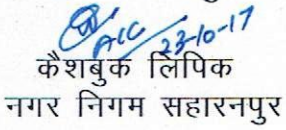 A/C 23-10-17
कैशबुक लिपिक
नगर निगम सहारनपुर